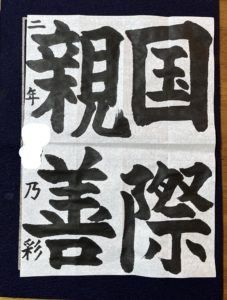 国際
親善
二年
乃彩